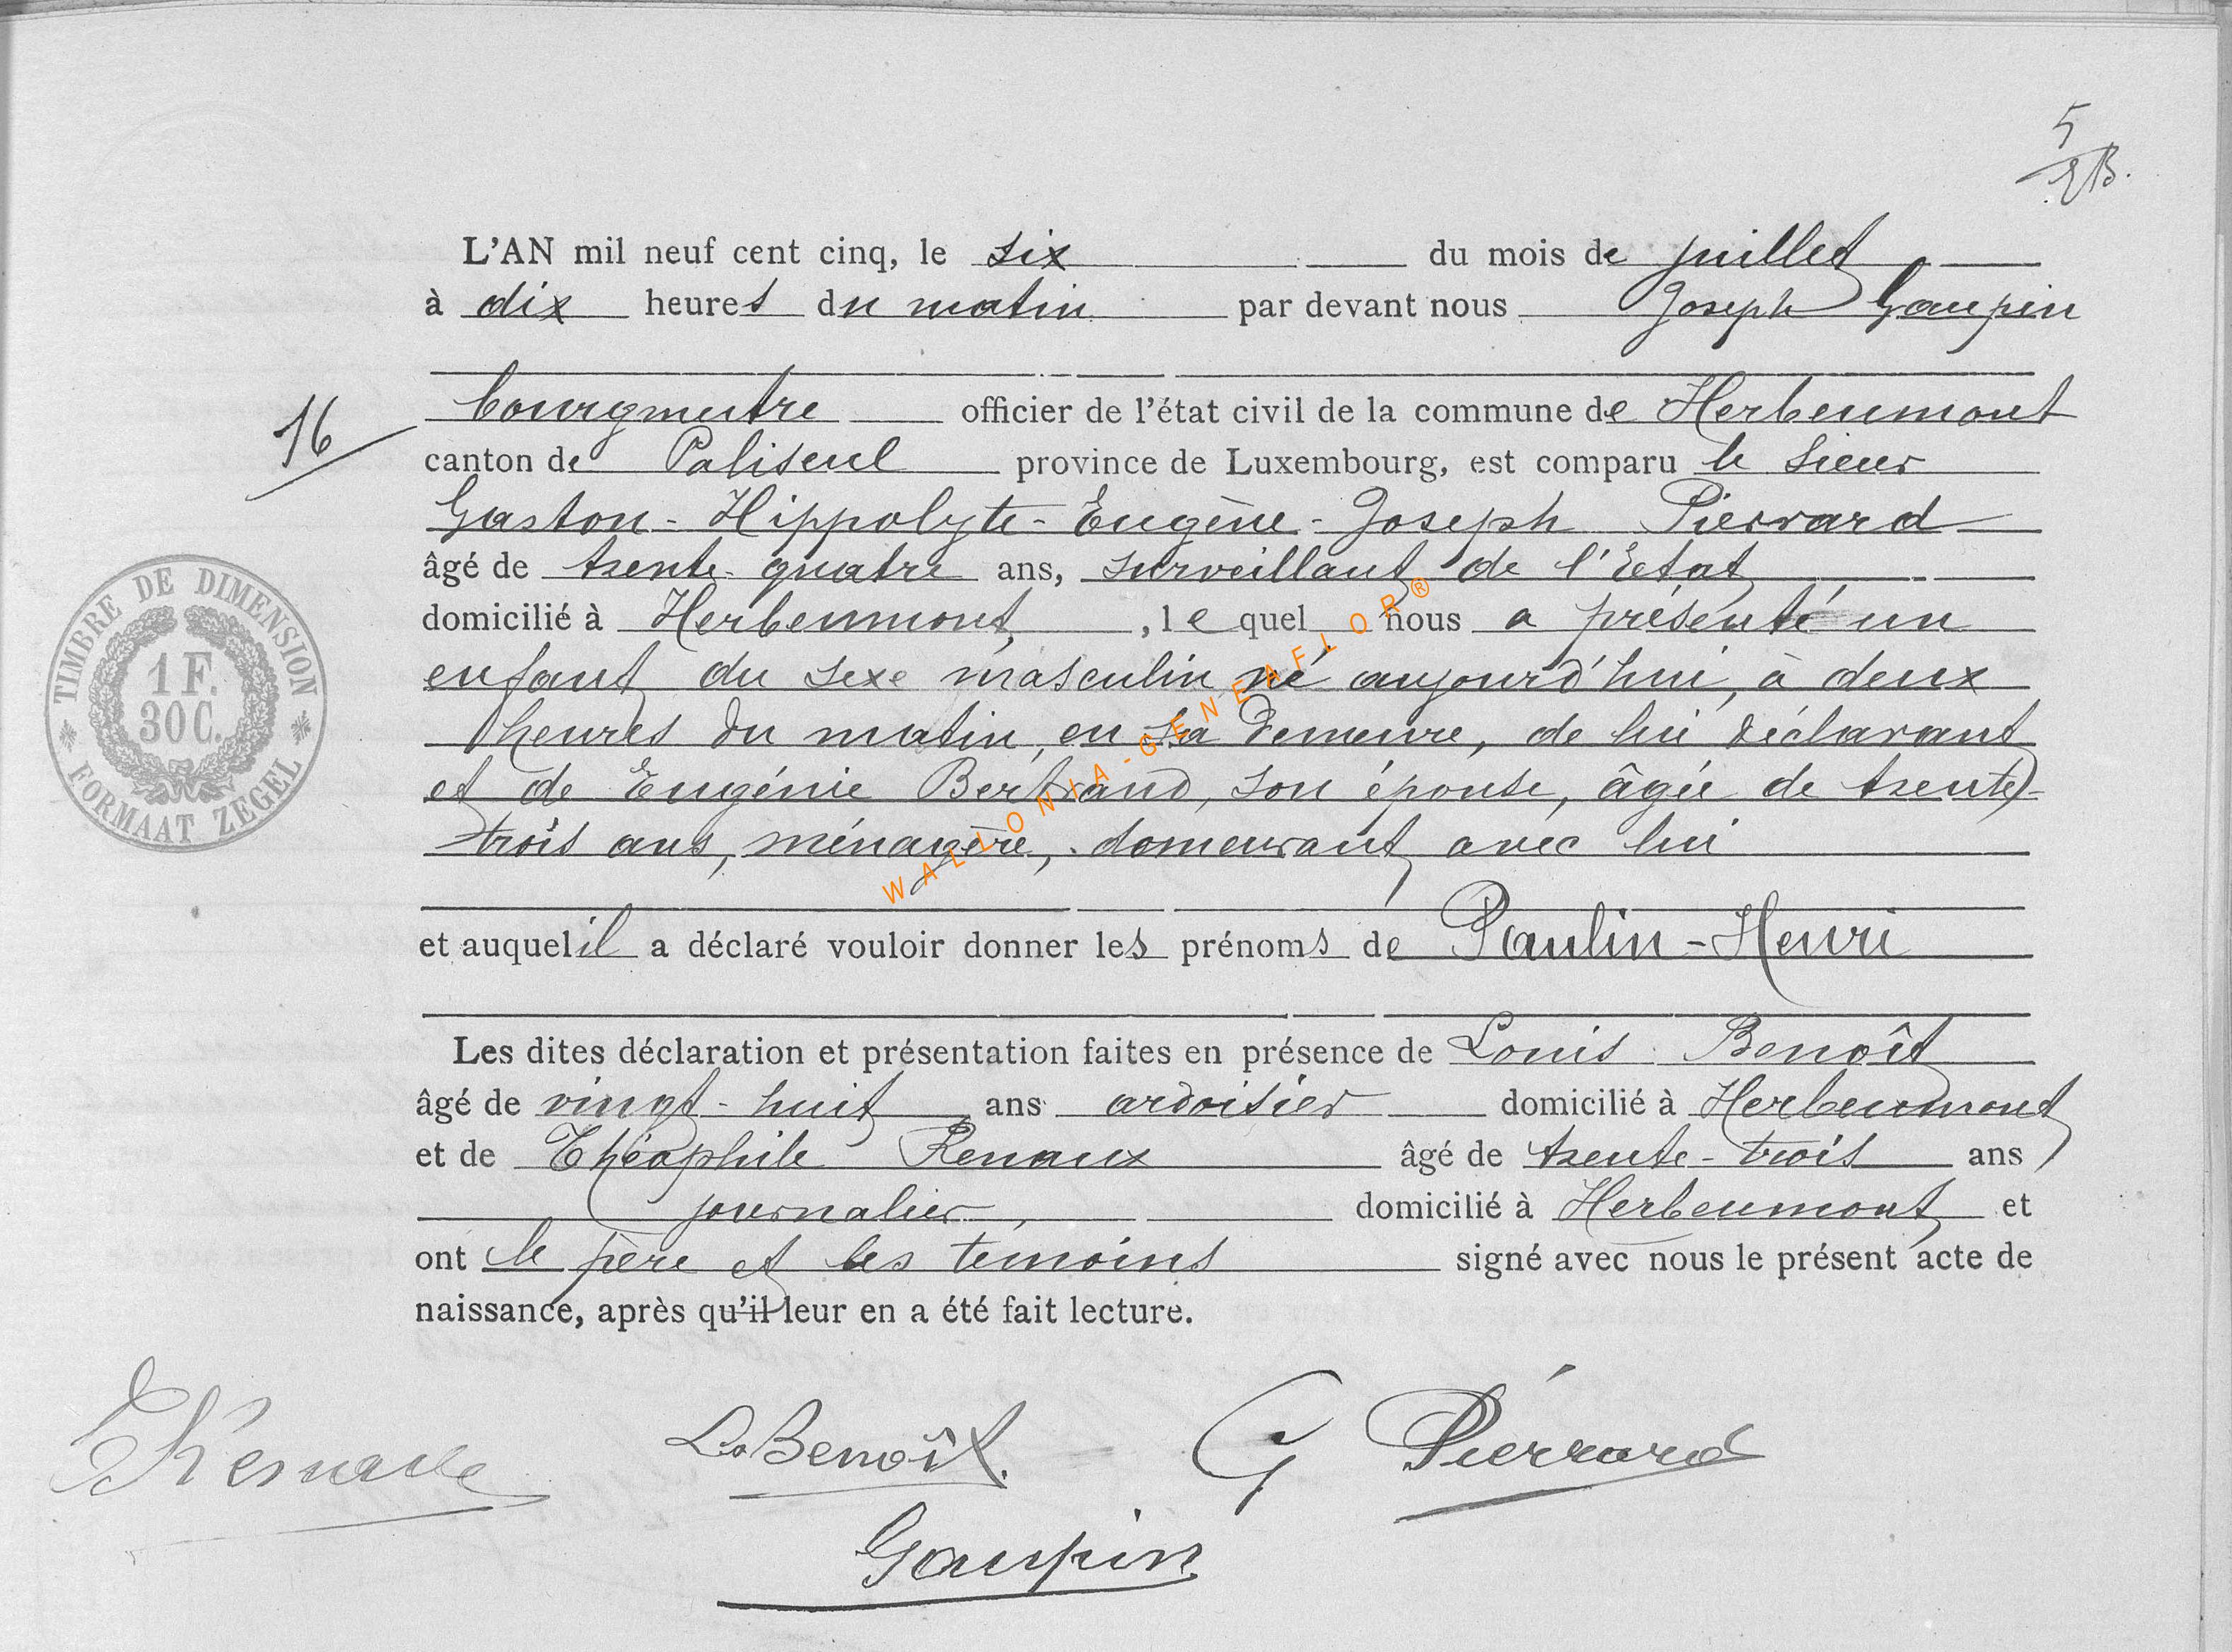 5
EB.
L'AN mil neuf cent cinq, le six du mois de juillet
à dix heures du matin par devant nous Joseph Gaupin
bourgmestre officier de l'état civil de la commune de Herbeumont
16
canton de Paliseul province de Luxembourg, est comparu le sieur
Gaston-Hippolyte-Eugène-Joseph Pierrard
âgé de trente-quatre ans, surveillant de l'Etat
domicilié à Herbeumont, lequel nous a présenté un
enfant du sexe masculin né aujourd'hui, à deux
heures du matin, en sa demeure, de lui déclarant
et de Eugénie Bertrand, son épouse, âgée de trente-
trois ans, ménagère, demeurant avec lui
et auquel il a déclaré vouloir donner les prénoms de Paulin-Henri
Les dites déclaration et présentation faites en présence de Louis Benoît
âgé de vingt-huit ans ardoisier domicilié à Herbeumont
et de Théophile Renaux âgé de trente-trois ans
journalier, domicilié à Herbeumont et
ont le père et les témoins signé avec nous le présent acte de
naissance, après qu'il leur en a été fait lecture.
TIMBRE DE DIMENSION
1 F.
30 C.
FORMAAT ZEGEL
WALLONIA-GENEAFLOR®
L. Benoît. G Pierrard
Gaupin